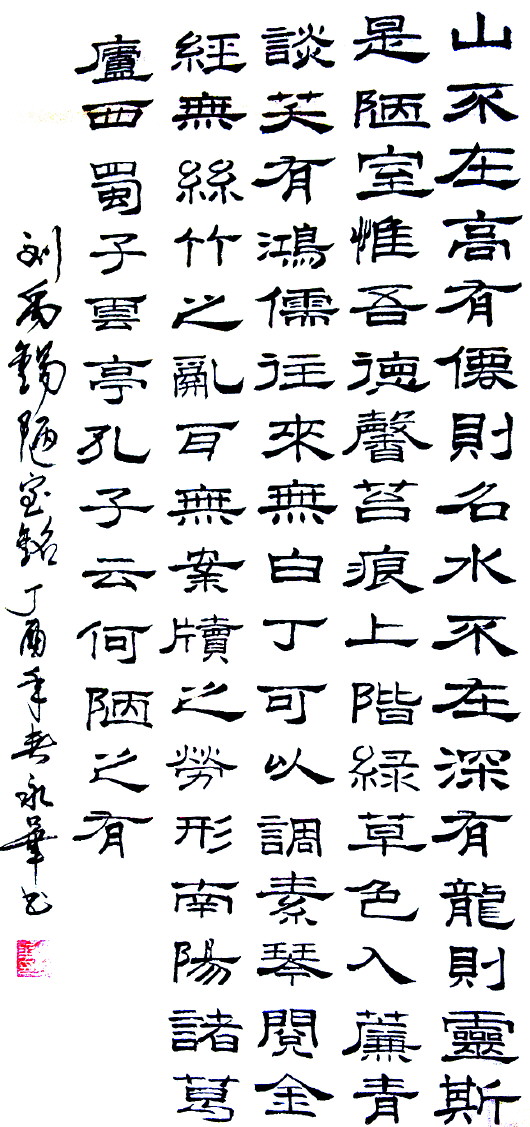 山不在高有僊則名水不在深有龍則靈斯
是陋室惟吾德馨苔痕上階緑草色入簾青
談笑有鴻儒往來無白丁可以調素琴閱金
經無絲竹之亂耳無案牘之勞形南陽諸葛
廬西蜀子雲亭孔子云何陋之有
刘禹錫陋室銘丁酉年春永華书